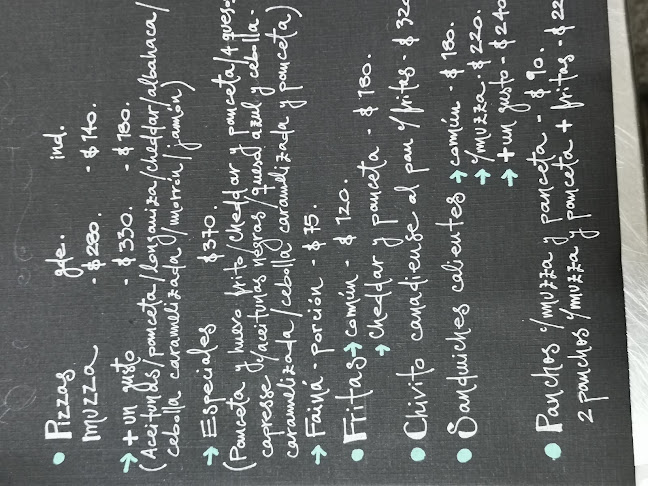 • Pizzas gde. ind.
muzza - $280. - $140.
→ + un gusto - $330. - $180.
(Aceitunas/panceta/longaniza/cheddar/albahaca/
cebolla caramelizada/morrón/jamón)
→ Especiales $370.
(Panceta y huevo frito/cheddar y panceta/4 quesos
capresse/aceitunas negras/queso azul y cebolla
caramelizada/cebolla caramelizada y panceta)
→ Fainá - porción - $75.
• Fritas → común - $120.
→ cheddar y panceta - $180.
• Chivito canadiense al pan c/fritas - $
• Sandwiches calientes → común - $180.
→ c/muzza - $220.
→ + un gusto - $240
• Panchos c/muzza y panceta - $90.
2 panchos c/muzza y panceta + fritas - $